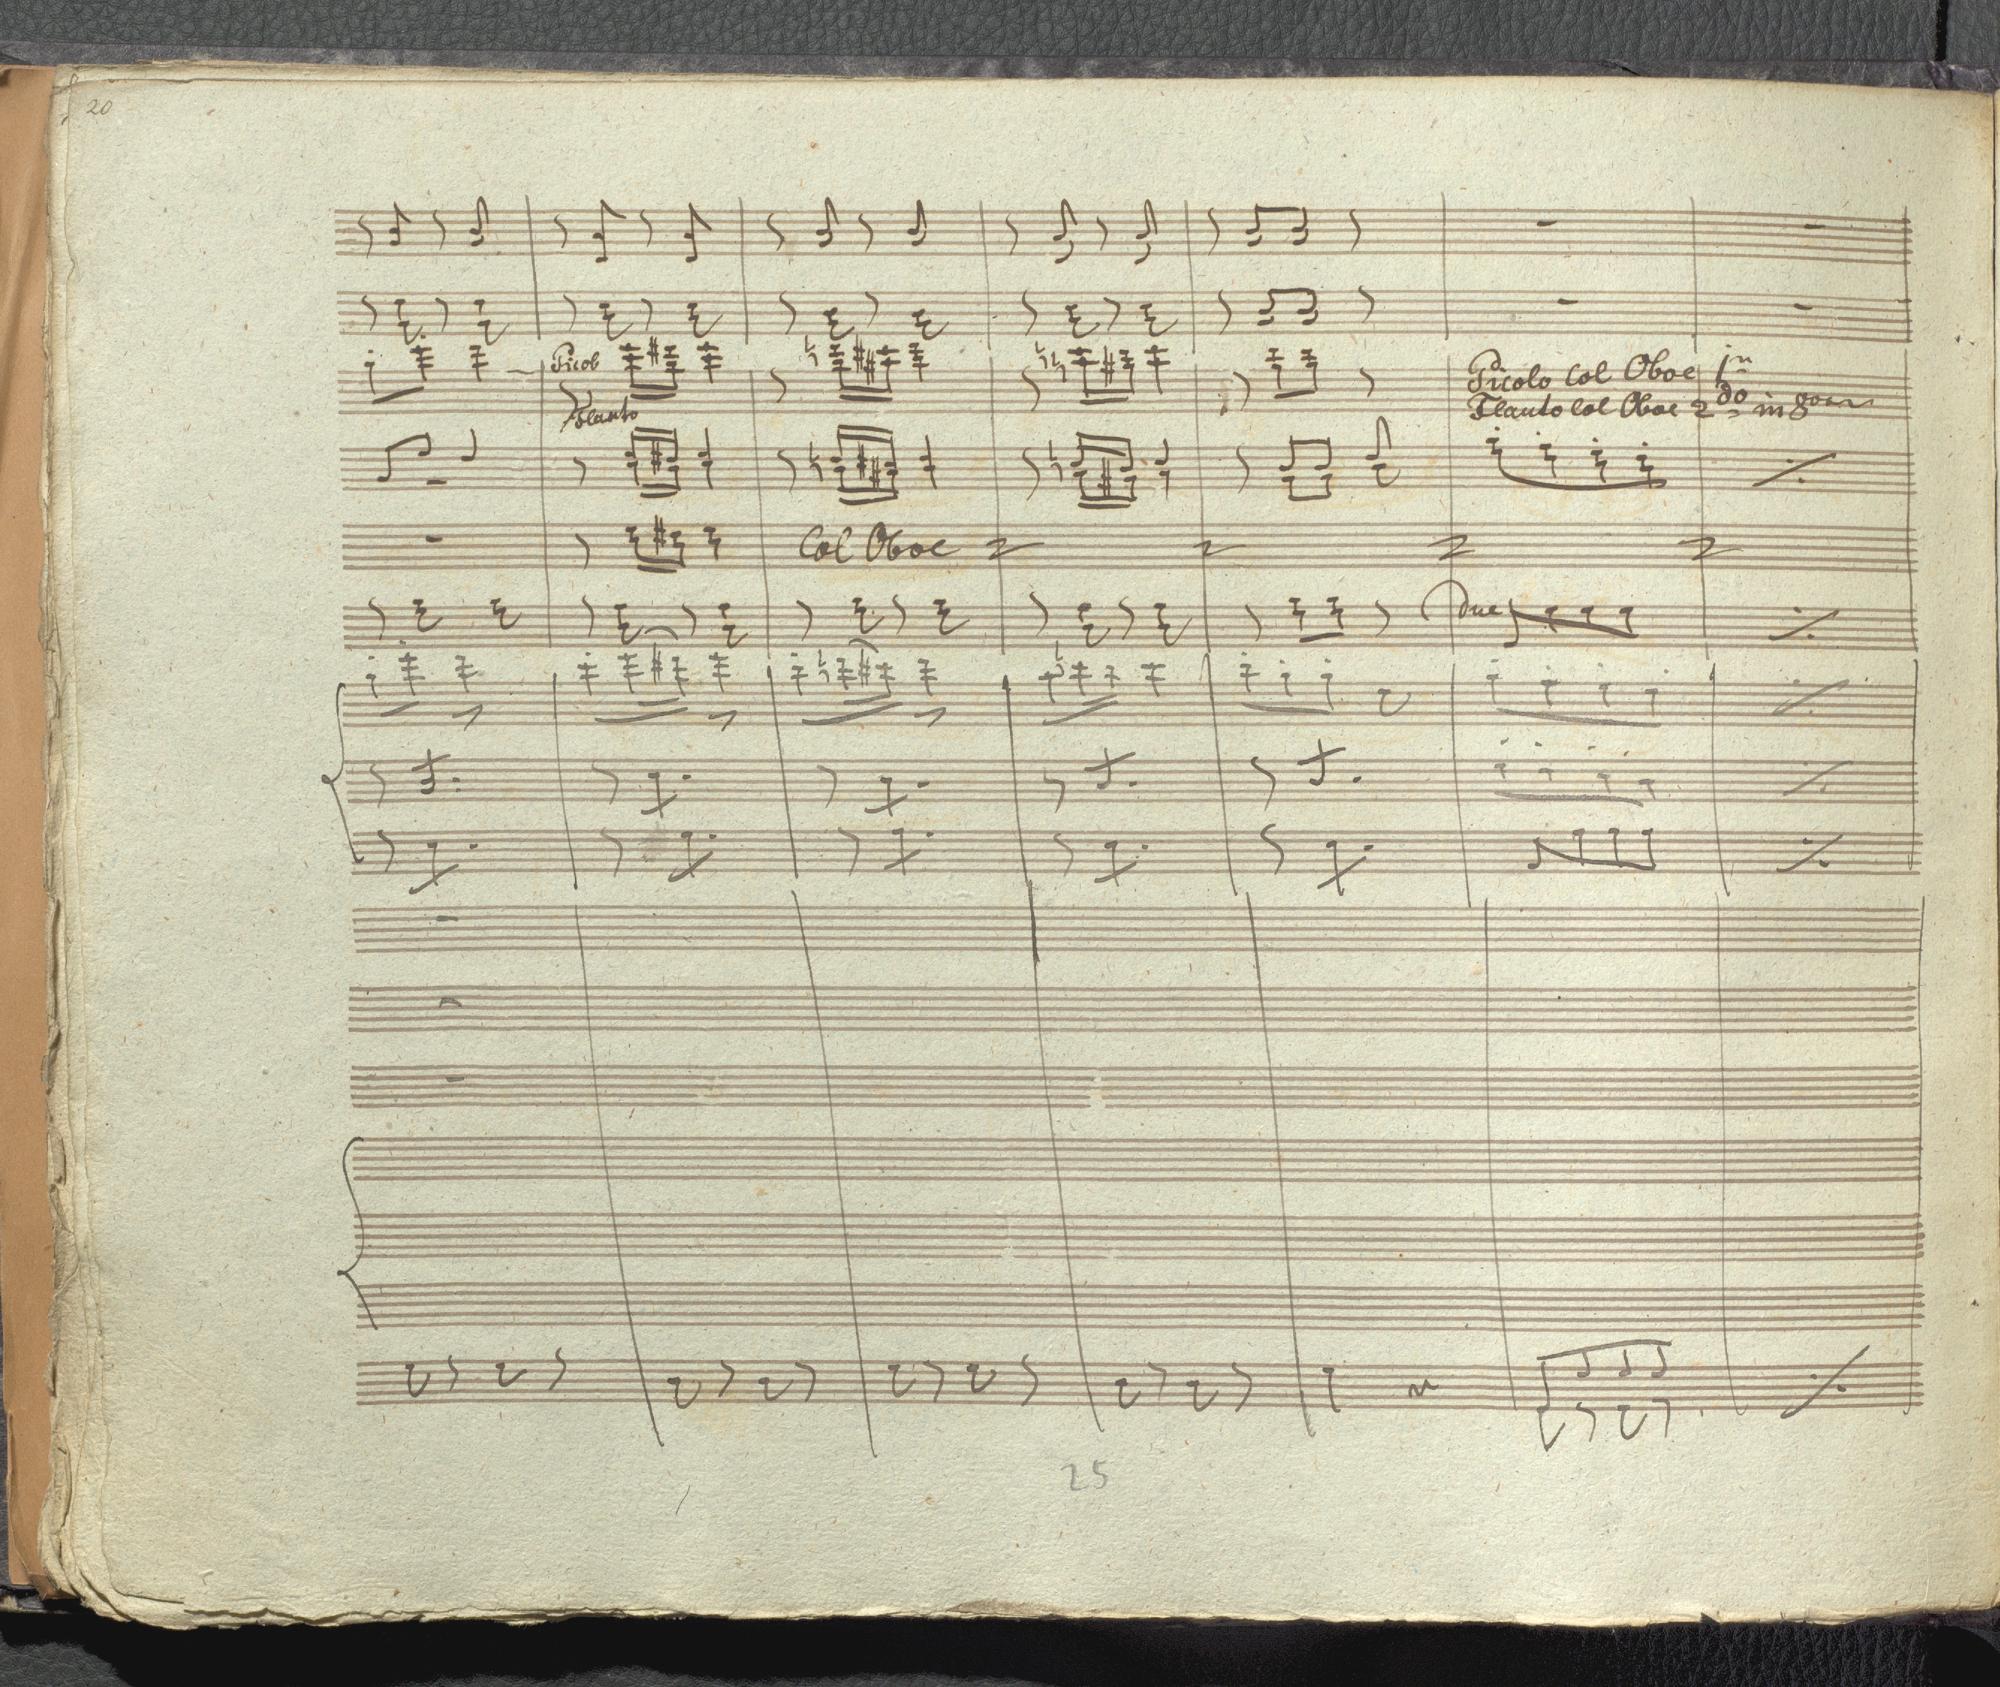 20
Picolo
Flauto
Picolo Col Oboe 1mo
Flauto Col Oboe 2do in 8va
Col Oboe
Due
25